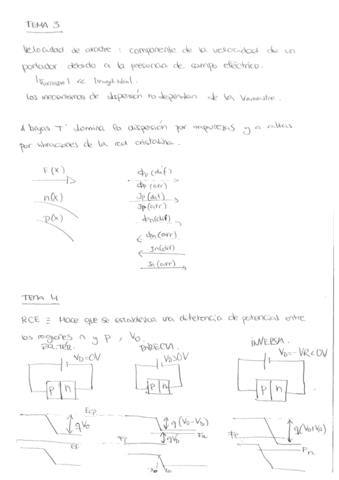 TEMA 3
Velocidad de arrastre : componente de la velocidad de un
portador debido a la presencia de campo eléctrico.
Los mecanismos de dispersión no dependen de la Varrastre.
A bajas Tª domina la dispersión por impurezas y a altas
por vibraciones de la red cristalina.
E(x)
n(x)
p(x)
ϕp (dif)
ϕp (arr)
Jp (dif)
Jp (arr)
ϕn (dif)
ϕn (arr)
Jn (dif)
Jn (arr)
TEMA 4
RCE ≡ Hace que se establezca una diferencia de potencial entre
las regiones n y p , V0
DIRECTA
INVERSA
VD=0V
VD>0V
VD=-VR<0V
p n
p n
p n
Ecp
qV0
EF
q(V0-VD)
Fp
qVD
Fn
Fp
q(VR+V0)
Fn